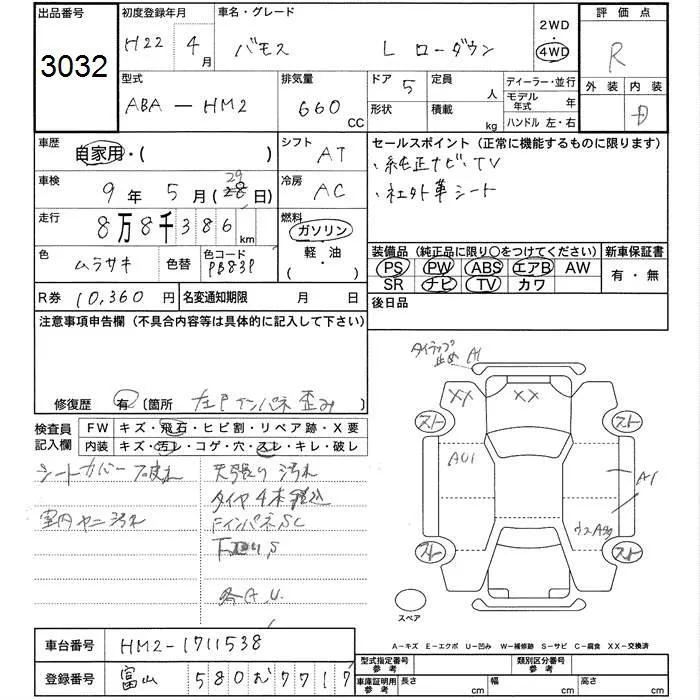 出品番号 初度登録年月 車名・グレード 2WD 評価点
3032 H22 4月 バモス L ローダウン 4WD R
型式 排気量 ドア 5 定員 人 ディーラー・並行 外装 内装
ABA-HM2 660 CC 形状 積載 kg モデル年式 年 D
ハンドル 左・右
車歴 自家用・( ) シフト AT セールスポイント(正常に機能するものに限ります)
・純正ナビ・TV
車検 9年 5月(28日) 29 冷房 AC ・社外革シート
走行 8万8千386km 燃料 ガソリン
軽・油
( )
色 ムラサキ 色替 色コード PB83P
装備品(純正品に限り〇をつけてください) 新車保証書
PS PW ABS エアB AW 有・無
SR ナビ TV カワ
R券 10,360円 名変通知期限 月 日 後日品
注意事項申告欄(不具合内容等は具体的に記入して下さい)
タイラップ止め A1
修復歴 有(箇所 左Fインパネ 歪み)
検査員記入欄 FW キズ・飛石・ヒビ割・リペア跡・X要
内装 キズ・汚レ・コゲ・穴・スレ・キレ・破レ
XX XX
スト スト
シートカバー 破れ 天張り汚れ
AU1 A1
タイヤ4本
室内ヤニ汚れ FインパネSC
スト スト
各A.U.
スペア
A-キズ E-エクボ U-凹み W-補修跡 S-サビ C-腐食 XX-交換済
車台番号 HM2-1711538
型式指定番号 参考 類別区分番号 参考
登録番号 富山 580む7717
車庫証明用 参考 長さ cm 幅 cm 高さ cm